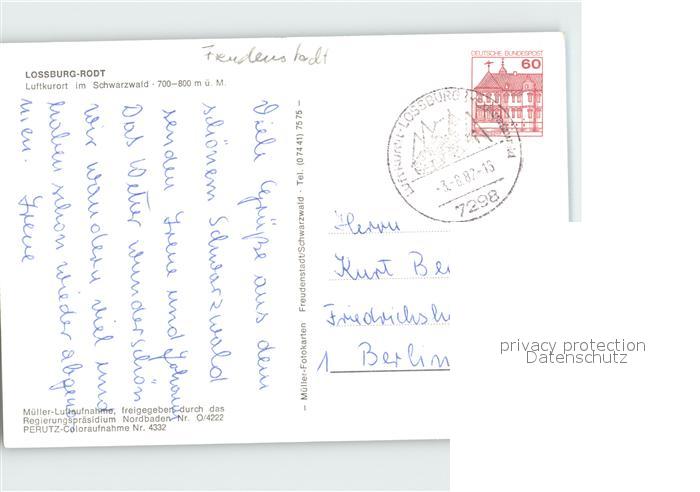 Freudenstadt
LOSSBURG-RODT
Luftkurort im Schwarzwald · 700–800 m ü. M.
Viele Grüße aus dem
schönen Schwarzwald
senden Irene und Johann
Das Wetter wunderschön
wir wandern viel und
haben schon wieder abgenom
men. Irene
Müller-Luftaufnahme, freigegeben durch das
Regierungspräsidium Nordbaden Nr. O/4222
PERUTZ-Coloraufnahme Nr. 4332
— Müller-Fotokarten Freudenstadt/Schwarzwald · Tel. (07441) 7575 —
DEUTSCHE BUNDESPOST
60
LOSSBURG
-3.-8.82-16
7298
Herrn
Kurt Be
Friedrichsh
1 Berlin
privacy protection
Datenschutz